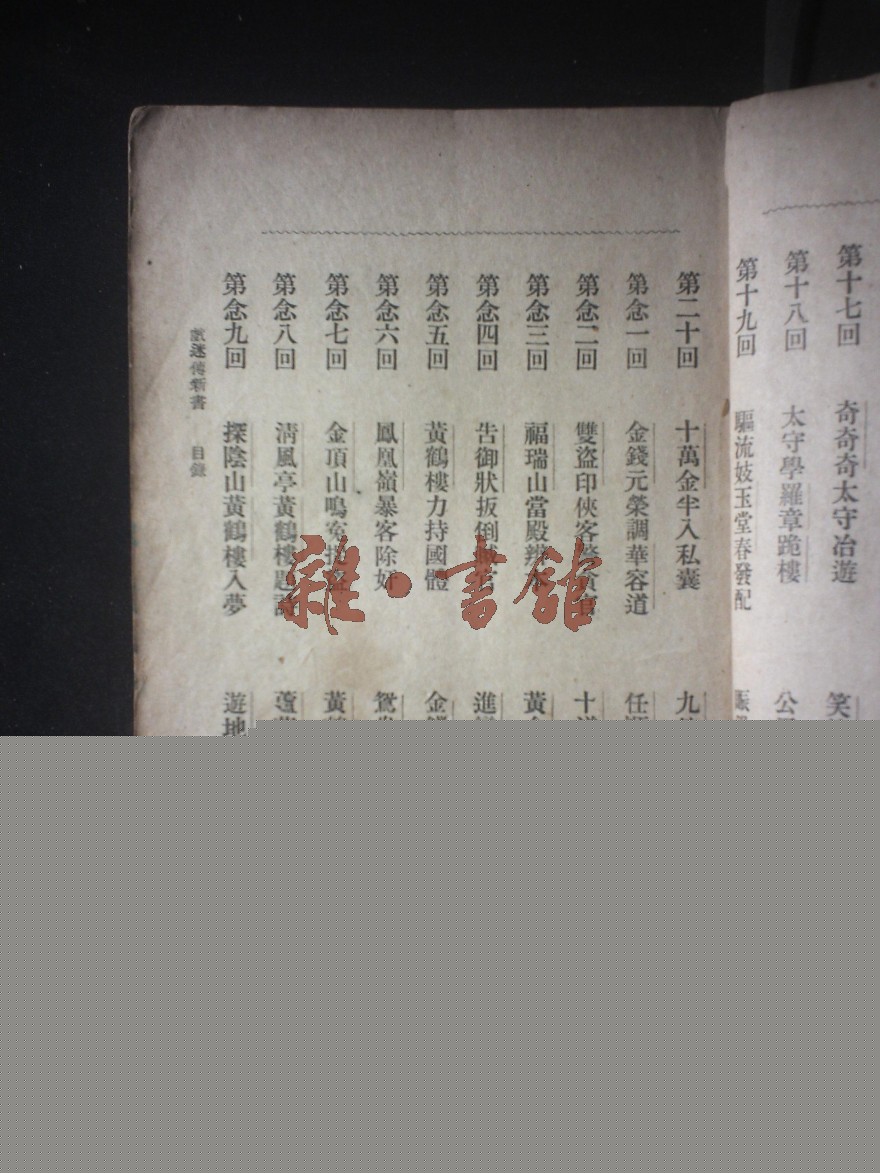 第十七回 奇奇奇太守冶遊 笑
第十八回 太守學羅章跪樓 公
第十九回 驅流妓玉堂春發配
第二十回 十萬金半入私囊 九
第念一回 金錢元榮調華容道 任
第念二回 雙盜印俠客
第念三回 福瑞山當殿辨 黃
第念四回 告御狀扳倒 進
第念五回 黃鶴樓力持國體 金
第念六回 鳳凰嶺暴客除奸 鴛
第念七回 金頂山鳴冤 黃
第念八回 清風亭黃鶴樓題詩
第念九回 探陰山黃鶴樓入夢 遊地
戲迷傳新書 目錄
雜·書館